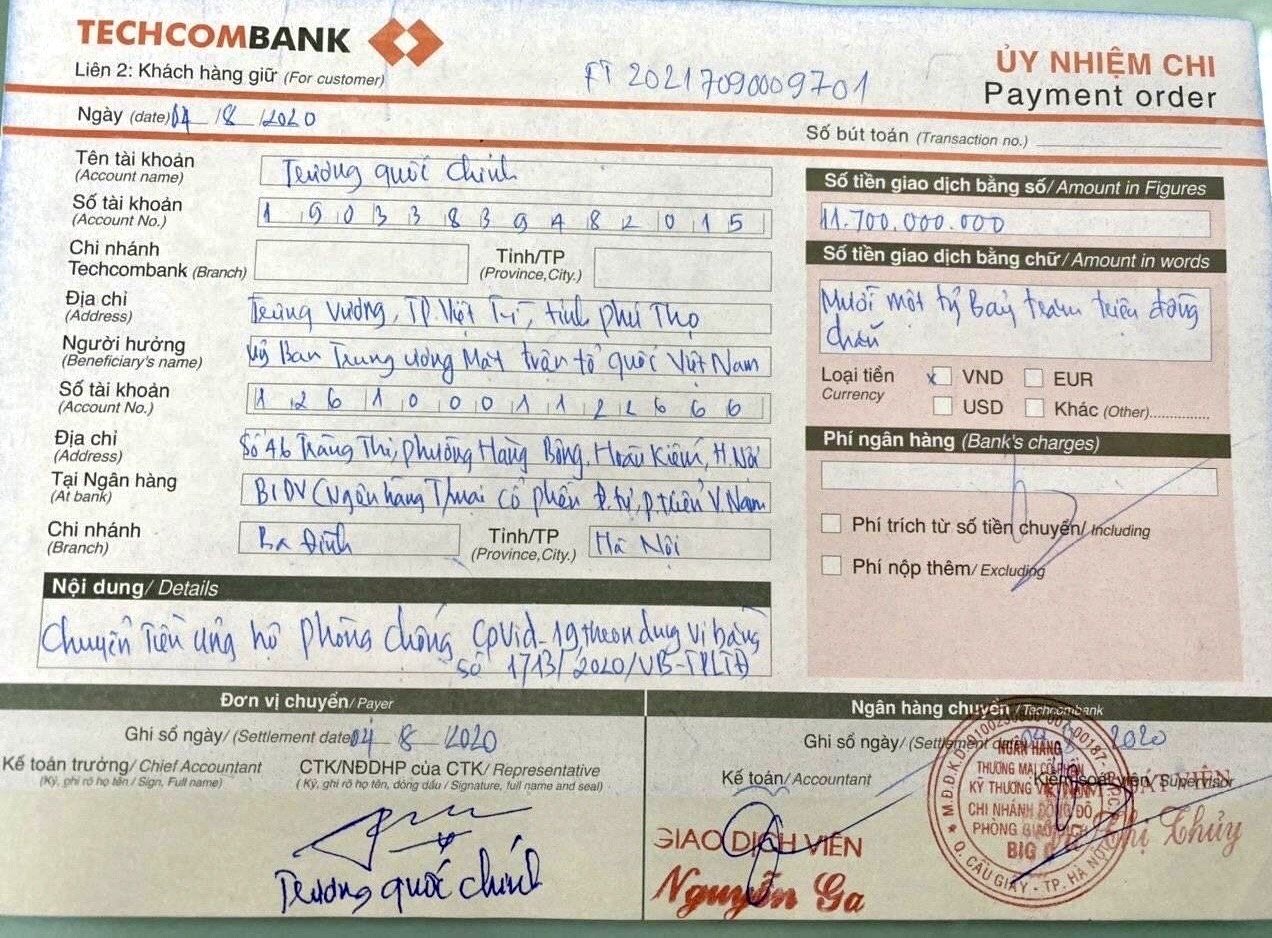 TECHCOMBANK
Liên 2: Khách hàng giữ (For customer)
FT 20217090009701
ỦY NHIỆM CHI
Payment order
Ngày (date) 04 / 8 / 2020
Số bút toán (Transaction no.)
Tên tài khoản
(Account name)
Trương quốc chính
Số tài khoản
(Account No.)
1 9 0 3 3 8 3 9 4 8 2 0 1 5
Chi nhánh
Techcombank (Branch)
Tỉnh/TP
(Province,City.)
Địa chỉ
(Address)
Trưng Vương, TP. Việt Trì, tỉnh phú Thọ
Người hưởng
(Beneficiary's name)
Uỷ Ban Trung ương Mặt trận tổ quốc Việt Nam
Số tài khoản
(Account No.)
1 2 6 1 0 0 0 1 1 2 2 6 6 6
Địa chỉ
(Address)
Số 46 Tràng Thi, phường Hàng Bông, Hoàn Kiếm, H.Nội
Tại Ngân hàng
(At bank)
BIDV (Ngân hàng Thương Mại cổ phần Đ.tư, P.triển V.Nam
Chi nhánh
(Branch)
Ba Đình
Tỉnh/TP
(Province,City.)
Hà Nội
Số tiền giao dịch bằng số/ Amount in Figures
11.700.000.000
Số tiền giao dịch bằng chữ/ Amount in words
Mười một tỷ Bảy trăm triệu đồng
chẵn
Loại tiền
Currency
x VND
EUR
USD
Khác (Other)..............
Phí ngân hàng (Bank's charges)
Phí trích từ số tiền chuyển/ Including
Phí nộp thêm/ Excluding
Nội dung/ Details
Chuyển tiền ủng hộ phòng chống Covid-19 theo nội dung vi bằng
số 1713/2020/VB-TPLTĐ
Đơn vị chuyển/ Payer
Ghi sổ ngày/ (Settlement date) 04 8 2020
Kế toán trưởng/ Chief Accountant
(Ký, ghi rõ họ tên / Sign, Full name)
CTK/NĐDHP của CTK/ Representative
( Ký, ghi rõ họ tên, dóng dấu / Signature, full name and seal)
Trương quốc chính
Ngân hàng chuyển / Techcombank
Ghi sổ ngày/ (Settlement date) 04 8 2020
Kế toán/ Accountant
Kiểm soát viên/ Supervisor
GIAO DỊCH VIÊN
Nguyễn Ga
NGÂN HÀNG
THƯƠNG MẠI CỔ PHẦN
KỸ THƯƠNG VIỆT NAM
CHI NHÁNH ĐÔNG ĐÔ
PHÒNG GIAO DỊCH
BIG
Q. CẦU GIẤY - TP. HÀ NỘI
Thị Thủy